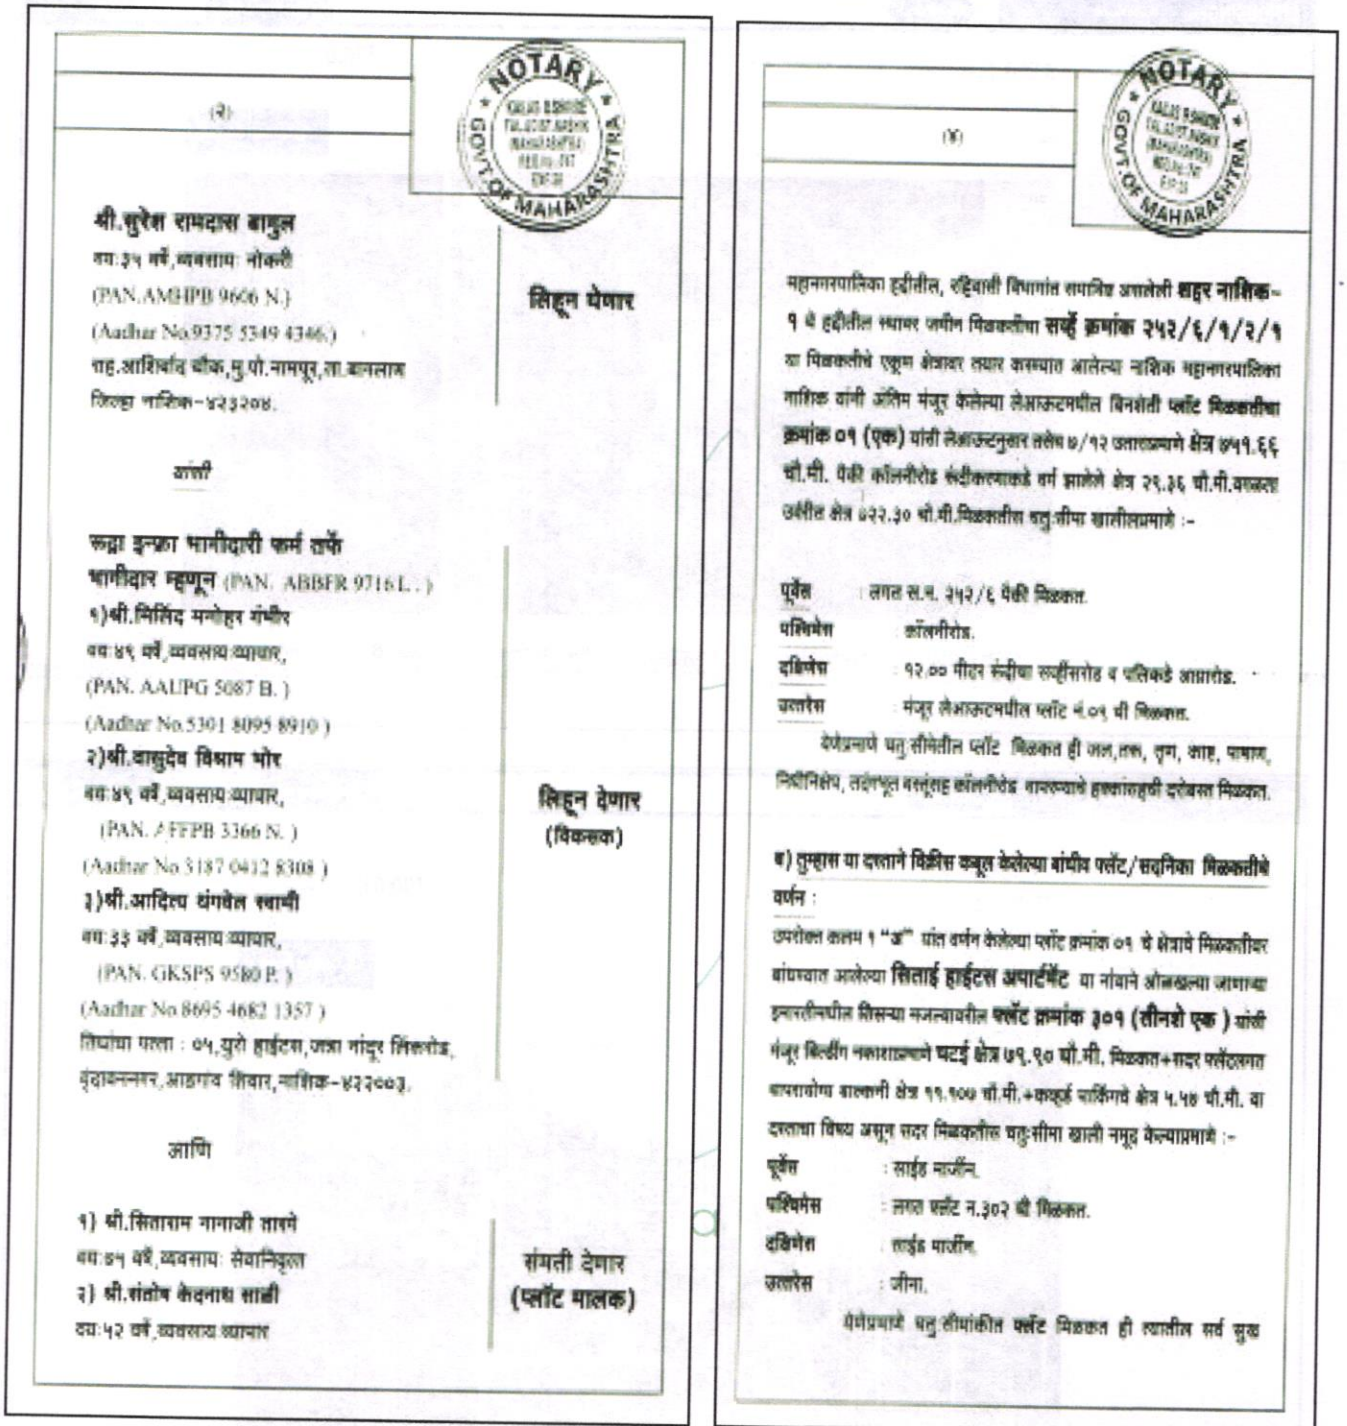 (२)
NOTARY
TAL.&DIST.NASHIK
(MAHARASHTRA)
GOVT. OF MAHARASHTRA
श्री.सुरेश रामदास बागुल
वय:३५ वर्षे,व्यवसाय: नोकरी
(PAN.AMHPB 9606 N.)
(Aadhar No.9375 5349 4346.)
राह.आशिर्वाद चौक,मु.पो.नामपूर,ता.बागलाण
जिल्हा नाशिक-४२३२०४.
लिहून घेणार
यांसी
रूद्रा इन्फ्रा भागीदारी फर्म तर्फे
भागीदार म्हणून (PAN. ABBFR 9716 L . )
१)श्री.मिलिंद मनोहर गंभीर
वय:४९ वर्षे,व्यवसाय:व्यापार,
(PAN. AAUPG 5087 B. )
(Aadhar No.5301 8095 8910 )
२)श्री.वासुदेव विश्राम भोर
वय:४९ वर्षे,व्यवसाय:व्यापार,
(PAN. AFFPB 3366 N. )
(Aadhar No 3187 0412 8308 )
३)श्री.आदित्य थंगवेल स्वामी
वय:३३ वर्षे,व्यवसाय:व्यापार,
(PAN. GKSPS 9580 P. )
(Aadhar No.8695 4682 1357 )
तिघांचा पत्ता : ०५,युरो हाईटस,जत्रा नांदूर लिंकरोड,
वृंदावननगर,आडगांव शिवार,नाशिक-४२२००३.
लिहून देणार
(विकसक)
आणि
१) श्री.सिताराम नानाजी तारगे
वय:७५ वर्षे,व्यवसाय: सेवानिवृत्त
२) श्री.संतोष केदनाथ साळी
वय:५२ वर्षे,व्यवसाय:व्यापार
संमती देणार
(प्लॉट मालक)
(४)
NOTARY
TAL.&DIST.NASHIK
(MAHARASHTRA)
GOVT. OF MAHARASHTRA
महानगरपालिका हद्दीतील, रहिवासी विभागांत समाविष्ट असलेली शहर नाशिक-
१ चे हद्दीतील स्थावर जमीन मिळकतीचा सर्व्हे क्रमांक २५२/६/१/२/१
या मिळकतीचे एकूण क्षेत्रावर तयार करण्यांत आलेल्या नाशिक महानगरपालिका
नाशिक यांनी अंतिम मंजूर केलेल्या लेआऊटमधील बिनशेती प्लॉट मिळकतीचा
क्रमांक ०१ (एक) यांसी लेआऊटनुसार तसेच ७/१२ उताराप्रमाणे क्षेत्र ७५१.६६
चौ.मी. पैकी कॉलनीरोड रुंदीकरणाकडे वर्ग झालेले क्षेत्र २९.३६ चौ.मी.वगळता
उर्वरीत क्षेत्र ७२२.३० चौ.मी.मिळकतीस चतु:सीमा खालीलप्रमाणे :-
पूर्वेस : लगत स.न. २५२/६ पैकी मिळकत.
पश्चिमेस : कॉलनीरोड.
दक्षिणेस : १२.०० मीटर रुंदीचा सर्व्हीसरोड व पलिकडे आग्रारोड.
उत्तरेस : मंजूर लेआऊटमधील प्लॉट नं.०९ ची मिळकत.
येणेप्रमाणे चतु:सीमेतील प्लॉट मिळकत ही जल,तरू, तृण, काष्ट, पाषाण,
निधीनिक्षेप, तदंगभूत वस्तूंसह कॉलनीरोड वापरण्याचे हक्कांसहची दरोबस्त मिळकत.
ब) तुम्हास या दस्ताने विक्रीस कबूल केलेल्या बांधीव फ्लॅट/सदनिका मिळकतीचे
वर्णन :
उपरोक्त कलम १ "अ" यांत वर्णन केलेल्या प्लॉट क्रमांक ०१ चे क्षेत्राचे मिळकतीवर
बांधण्यात आलेल्या सिताई हाईटस अपार्टमेंट या नांवाने ओळखल्या जाणाऱ्या
इमारतीमधील तिसऱ्या मजल्यावरील फ्लॅट क्रमांक ३०१ (तीनशे एक ) यांसी
मंजूर बिल्डींग नकाशाप्रमाणे चटई क्षेत्र ७९.९० चौ.मी. मिळकत+सदर फ्लॅटलगत
वापरायोग्य बाल्कनी क्षेत्र ११.१०७ चौ.मी.+कव्हर्ड पार्कींगचे क्षेत्र ५.५७ चौ.मी. या
दस्ताचा विषय असून सदर मिळकतीस चतु:सीमा खाली नमूद केल्याप्रमाणे :-
पूर्वेस : साईड मार्जीन.
पश्चिमेस : लगत फ्लॅट न.३०२ ची मिळकत.
दक्षिणेस : साईड मार्जीन.
उत्तरेस : जीना.
येणेप्रमाणे चतु:सीमांकीत फ्लॅट मिळकत ही त्यातील सर्व सुख